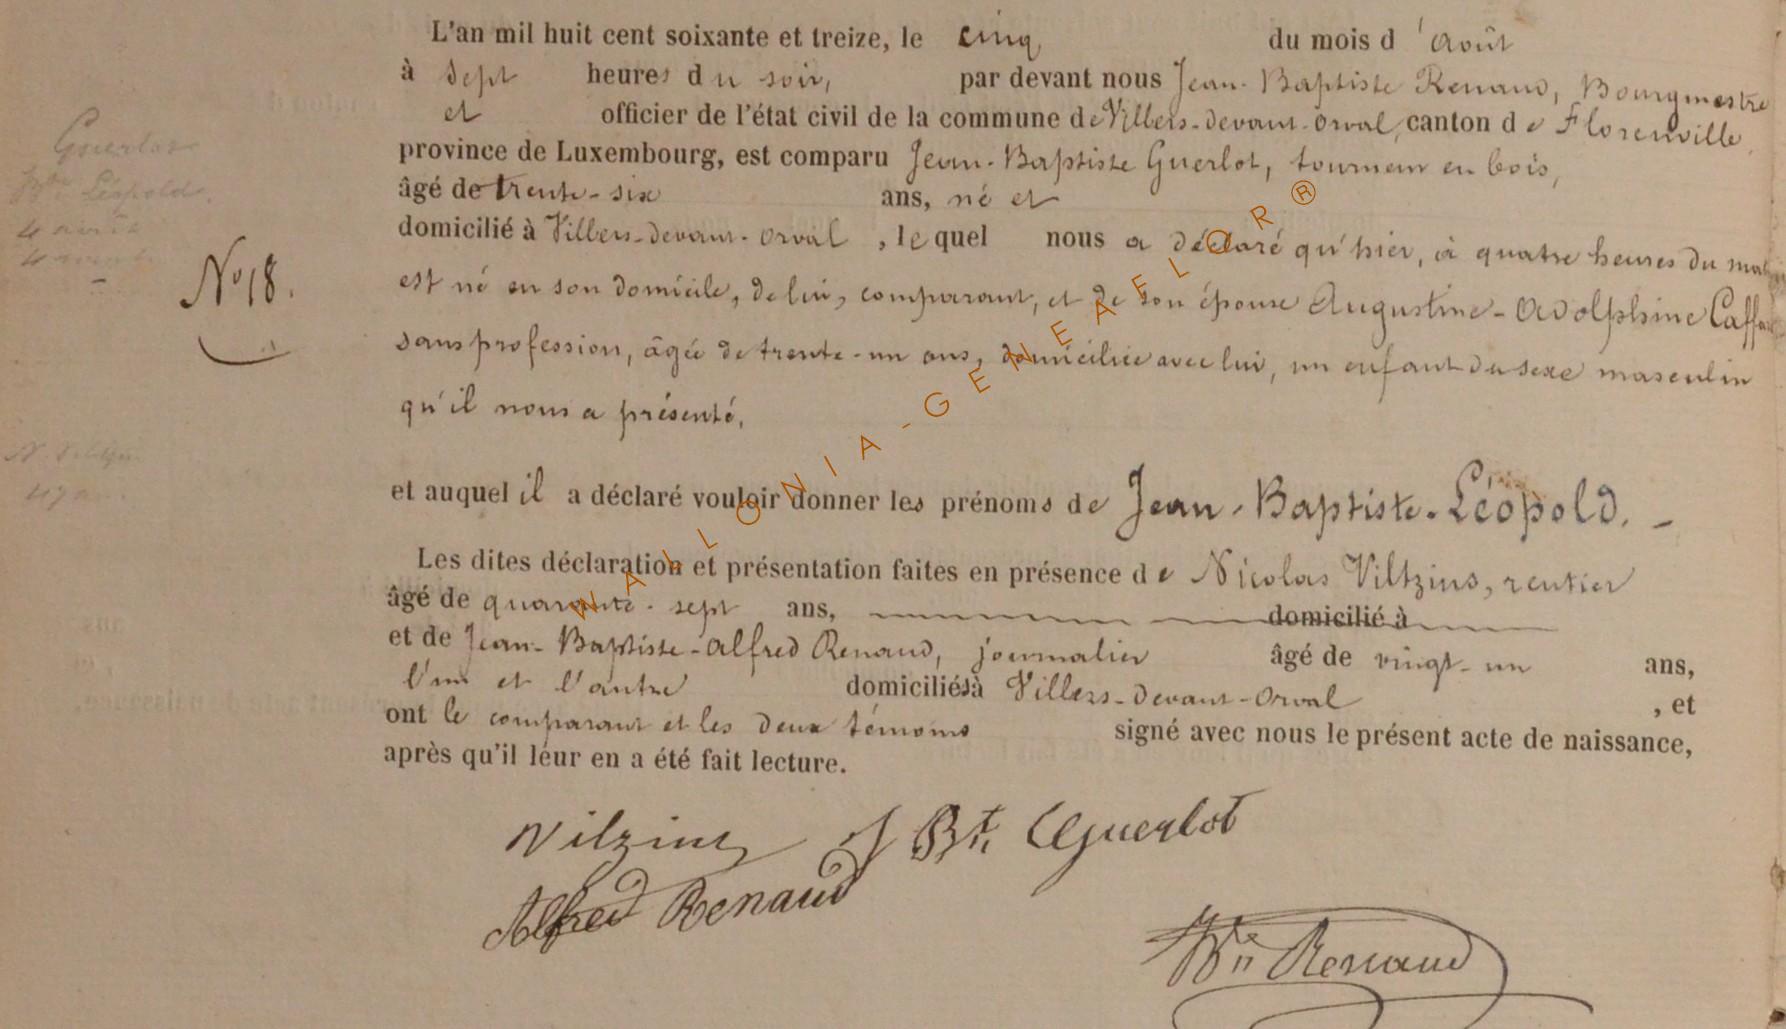 L'an mil huit cent soixante et treize, le cinq du mois d'Août
à sept heures du soir, par devant nous Jean-Baptiste Renaud, Bourgmestre
et officier de l'état civil de la commune de Villers-devant-Orval, canton de Florenville,
province de Luxembourg, est comparu Jean-Baptiste Guerlot, tourneur en bois,
âgé de trente-six ans, né et
domicilié à Villers-devant-Orval, lequel nous a déclaré qu'hier, à quatre heures du
N° 18.
est né en son domicile, de lui, comparant, et de son épouse Augustine-Adolphine
sans profession, âgée de trente-un ans, domiciliée avec lui, un enfant du sexe masculin
qu'il nous a présenté,
et auquel il a déclaré vouloir donner les prénoms de Jean-Baptiste-Léopold. -
Les dites déclaration et présentation faites en présence de Nicolas Viltzius, rentier
âgé de quarante-sept ans, domicilié à
et de Jean-Baptiste-Alfred Renaud, journalier âgé de vingt-un ans,
l'un et l'autre domiciliés à Villers-devant-Orval, et
ont le comparant et les deux témoins signé avec nous le présent acte de naissance,
après qu'il leur en a été fait lecture.
Guerlot
Bte Léopold.
4 août
WALLONIA-GENEAFLOR®
Vilzius J Bte Guerlot
Alfred Renaud
Renaud